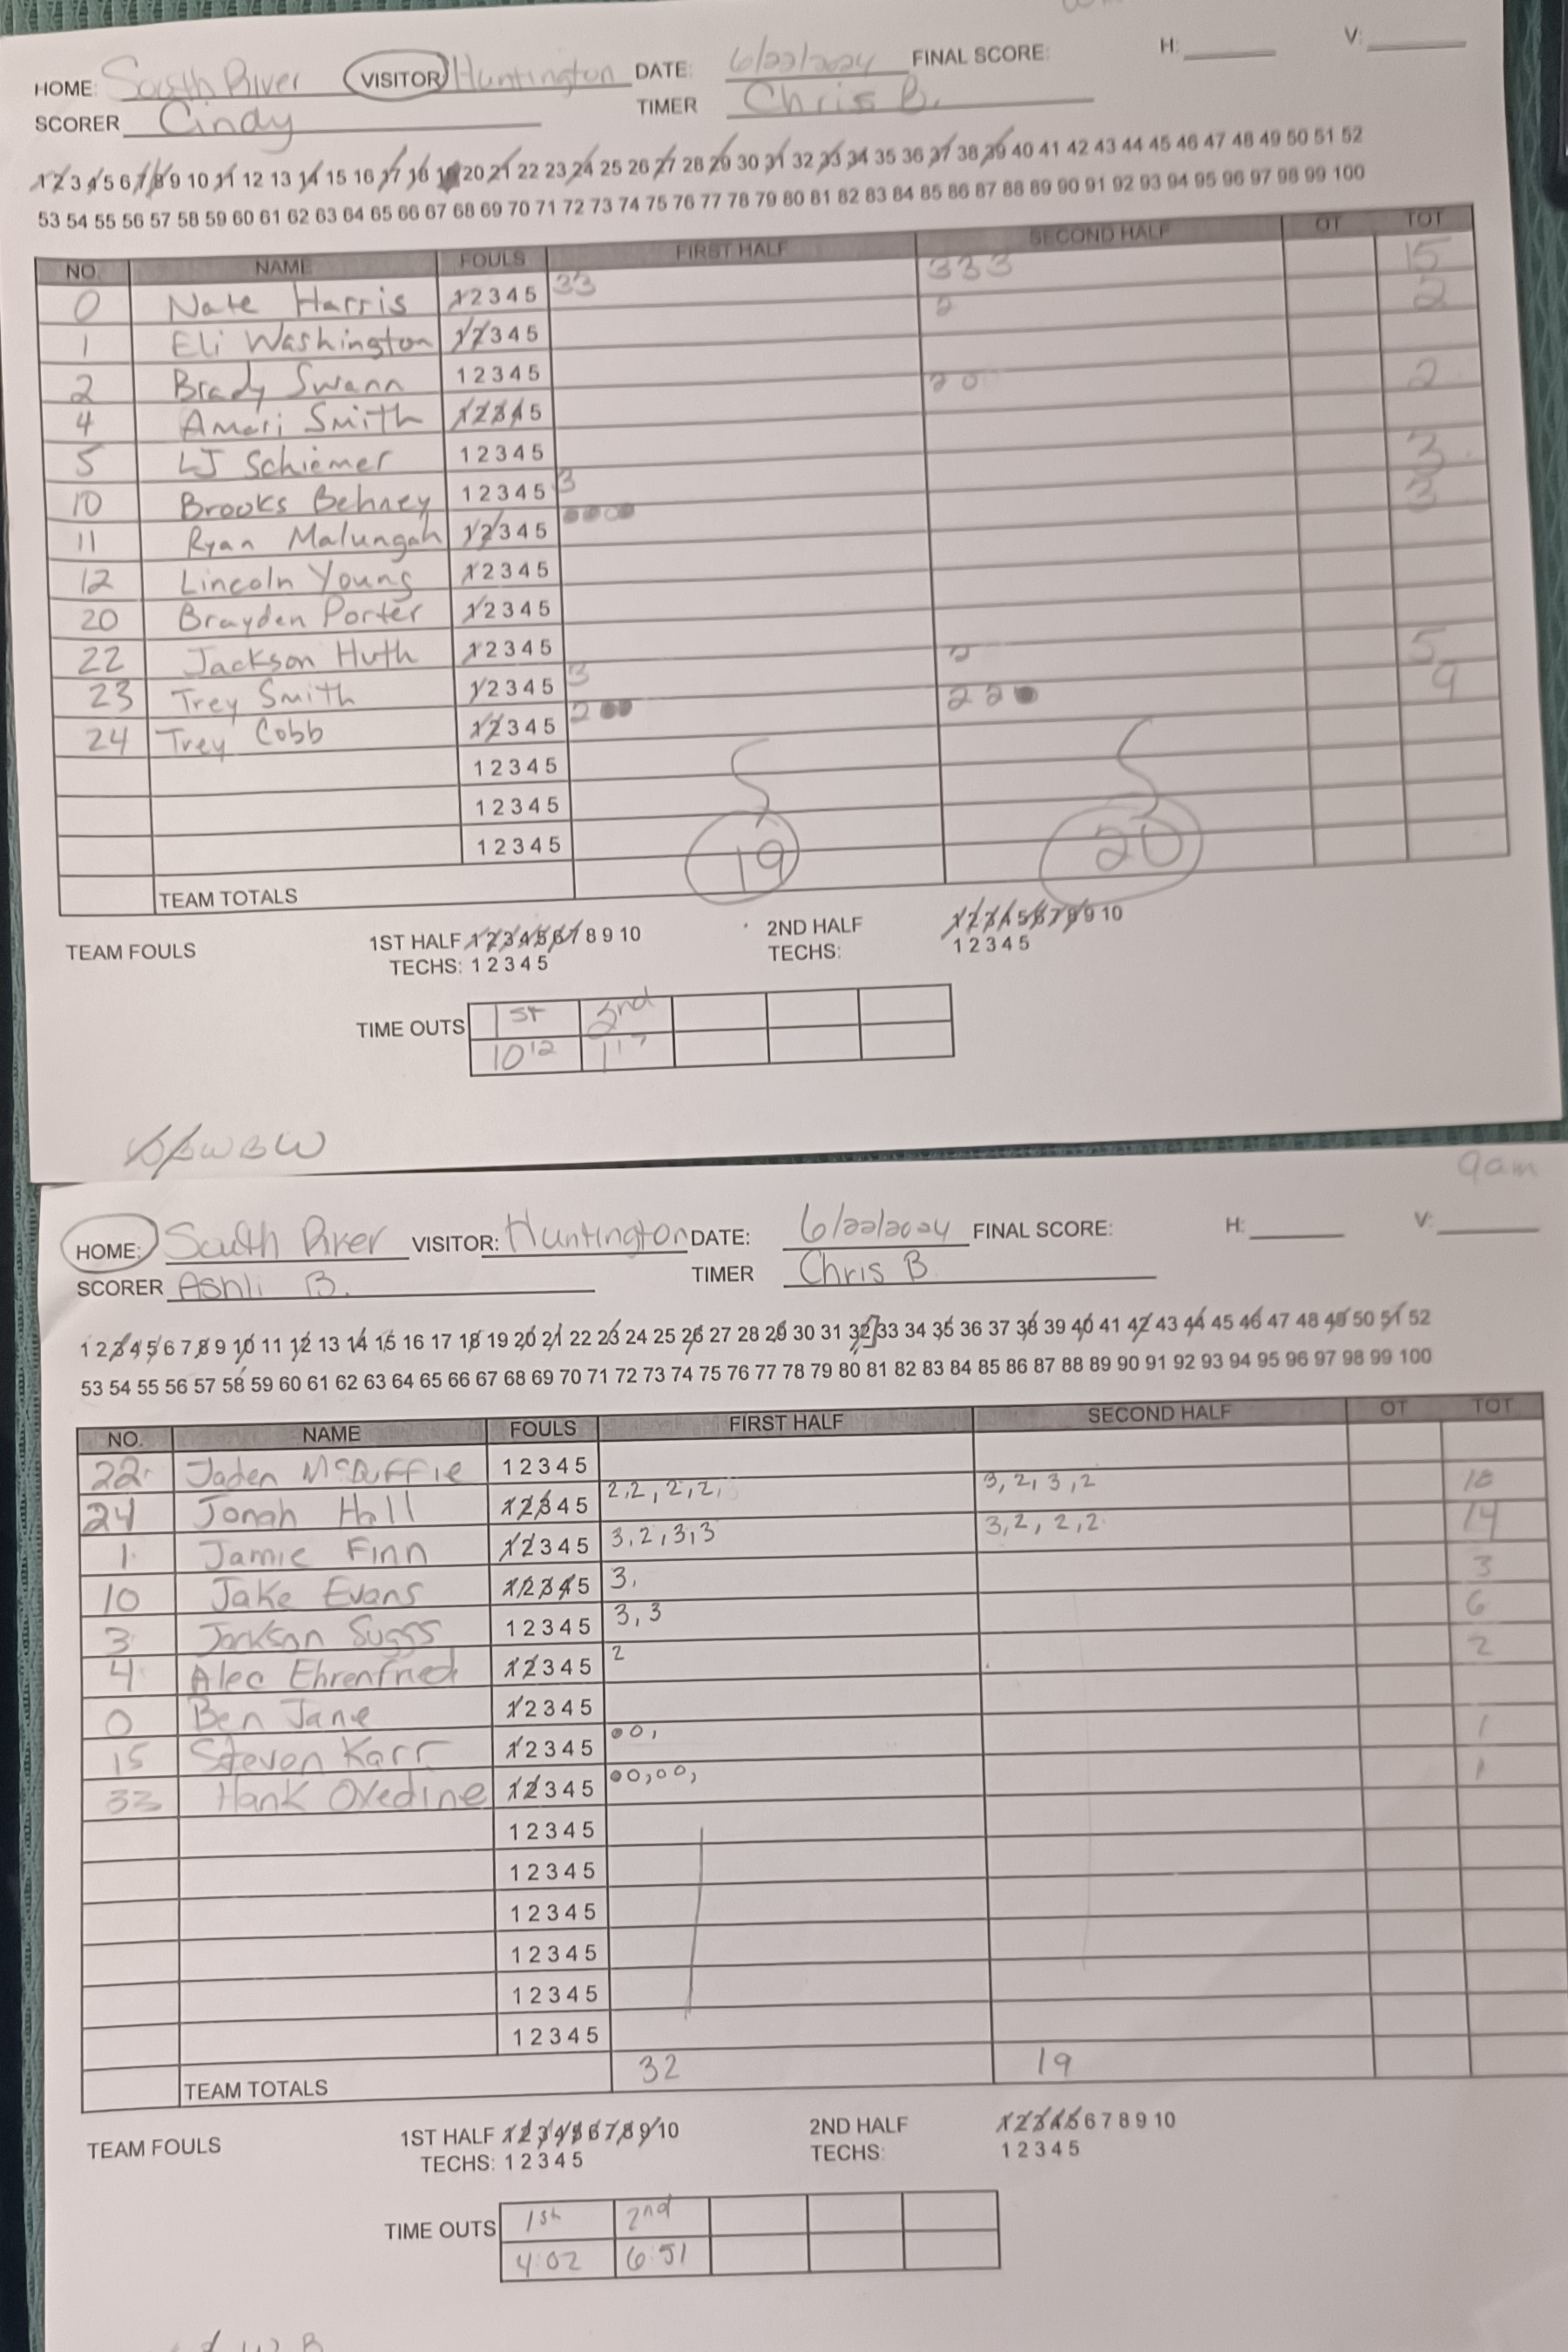 HOME: South River VISITOR: Huntington DATE: 6/22/2024 FINAL SCORE: H: V:
SCORER Cindy TIMER Chris B.
1 2 3 4 5 6 7 8 9 10 11 12 13 14 15 16 17 18 19 20 21 22 23 24 25 26 27 28 29 30 31 32 33 34 35 36 37 38 39 40 41 42 43 44 45 46 47 48 49 50 51 52
53 54 55 56 57 58 59 60 61 62 63 64 65 66 67 68 69 70 71 72 73 74 75 76 77 78 79 80 81 82 83 84 85 86 87 88 89 90 91 92 93 94 95 96 97 98 99 100
NO. NAME FOULS FIRST HALF SECOND HALF OT TOT
0 Nate Harris 1 2 3 4 5 33 333 15
1 Eli Washington 1 2 3 4 5 2 2
2 Brady Swann 1 2 3 4 5
4 Amari Smith 1 2 3 4 5 2 0 2
5 LJ Schiemer 1 2 3 4 5
10 Brooks Behney 1 2 3 4 5 3 3
11 Ryan Malungah 1 2 3 4 5 3
12 Lincoln Young 1 2 3 4 5
20 Brayden Porter 1 2 3 4 5
22 Jackson Huth 1 2 3 4 5
23 Trey Smith 1 2 3 4 5 3 2 5
24 Trey Cobb 1 2 3 4 5 2 2 2 9
1 2 3 4 5
1 2 3 4 5
1 2 3 4 5
TEAM TOTALS 19 20
TEAM FOULS 1ST HALF 1 2 3 4 5 6 7 8 9 10 2ND HALF 1 2 3 4 5 6 7 8 9 10
TECHS: 1 2 3 4 5 TECHS: 1 2 3 4 5
TIME OUTS 1st 2nd
10 12
W B W
9am
HOME: South River VISITOR: Huntington DATE: 6/22/2024 FINAL SCORE: H: V:
SCORER Ashli B. TIMER Chris B
1 2 3 4 5 6 7 8 9 10 11 12 13 14 15 16 17 18 19 20 21 22 23 24 25 26 27 28 29 30 31 32 33 34 35 36 37 38 39 40 41 42 43 44 45 46 47 48 49 50 51 52
53 54 55 56 57 58 59 60 61 62 63 64 65 66 67 68 69 70 71 72 73 74 75 76 77 78 79 80 81 82 83 84 85 86 87 88 89 90 91 92 93 94 95 96 97 98 99 100
NO. NAME FOULS FIRST HALF SECOND HALF OT TOT
22 Jaden McDuffie 1 2 3 4 5
24 Jonah Hall 1 2 3 4 5 2,2,2,2, 3,2,3,2 18
1 Jamie Finn 1 2 3 4 5 3,2,3,3 3,2,2,2 14
10 Jake Evans 1 2 3 4 5 3, 3
3 Jackson Suggs 1 2 3 4 5 3,3 6
4 Alec Ehrenfried 1 2 3 4 5 2 2
0 Ben Jane 1 2 3 4 5
15 Steven Karr 1 2 3 4 5 00, 1
33 Hank Oxedine 1 2 3 4 5 00,00, 1
1 2 3 4 5
1 2 3 4 5
1 2 3 4 5
1 2 3 4 5
1 2 3 4 5
1 2 3 4 5
TEAM TOTALS 32 19
TEAM FOULS 1ST HALF 1 2 3 4 5 6 7 8 9 10 2ND HALF 1 2 3 4 5 6 7 8 9 10
TECHS: 1 2 3 4 5 TECHS: 1 2 3 4 5
TIME OUTS 1st 2nd
4:02 6:51
W B